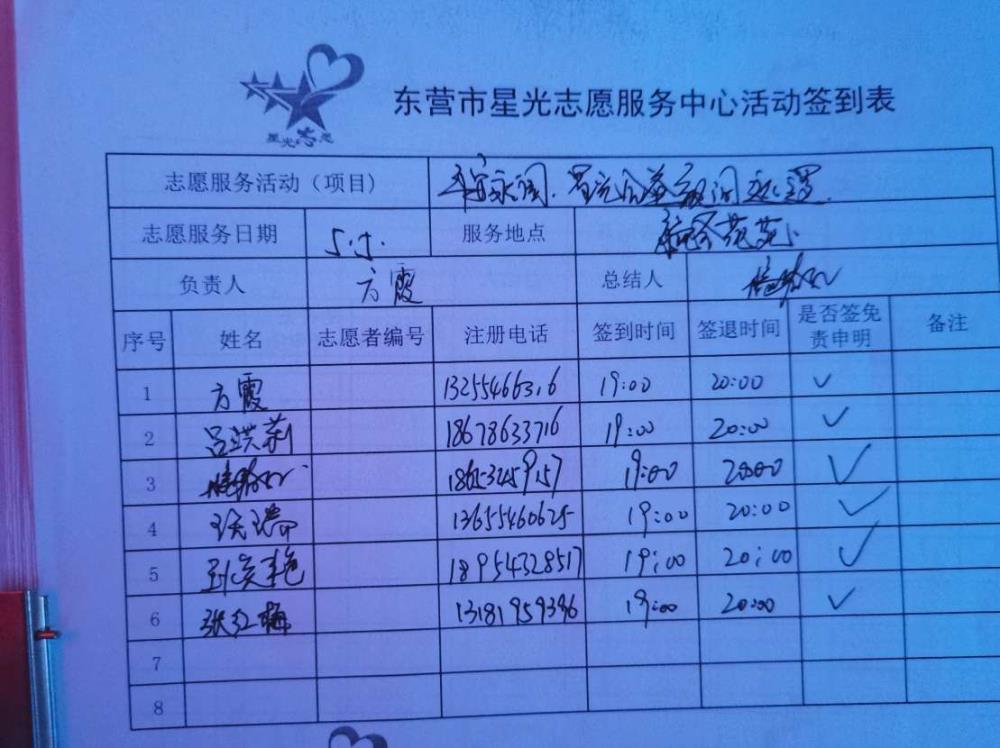 星光志愿
东营市星光志愿服务中心活动签到表
志愿服务活动（项目）
志愿服务日期 5.5. 服务地点
负责人 方霞 总结人
序号 姓名 志愿者编号 注册电话 签到时间 签退时间 是否签免责申明 备注
1 方霞 13255466316 19:00 20:00 ✓
2 吕洪莉 18678633716 19:00 20:00 ✓
3 19:00 20:00 ✓
4 13655460625 19:00 20:00 ✓
5 18954328517 19:00 20:00 ✓
6 张红梅 13181959396 19:00 20:00 ✓
7
8